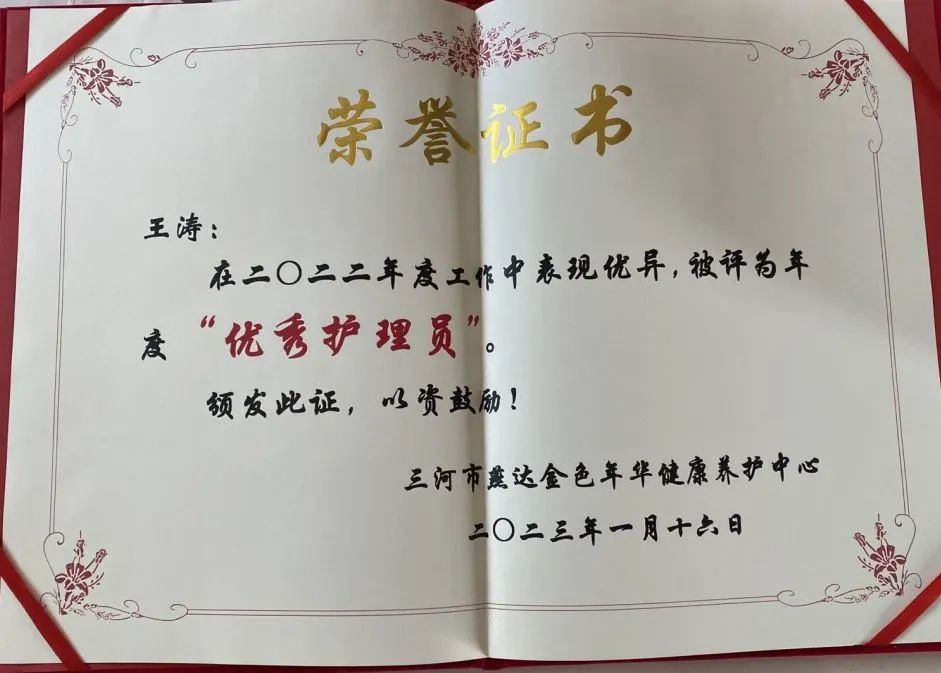 荣誉证书
王涛：
在二〇二二年度工作中表现优异，被评为年
度“优秀护理员”。
颁发此证，以资鼓励！
三河市燕达金色年华健康养护中心
二〇二三年一月十六日